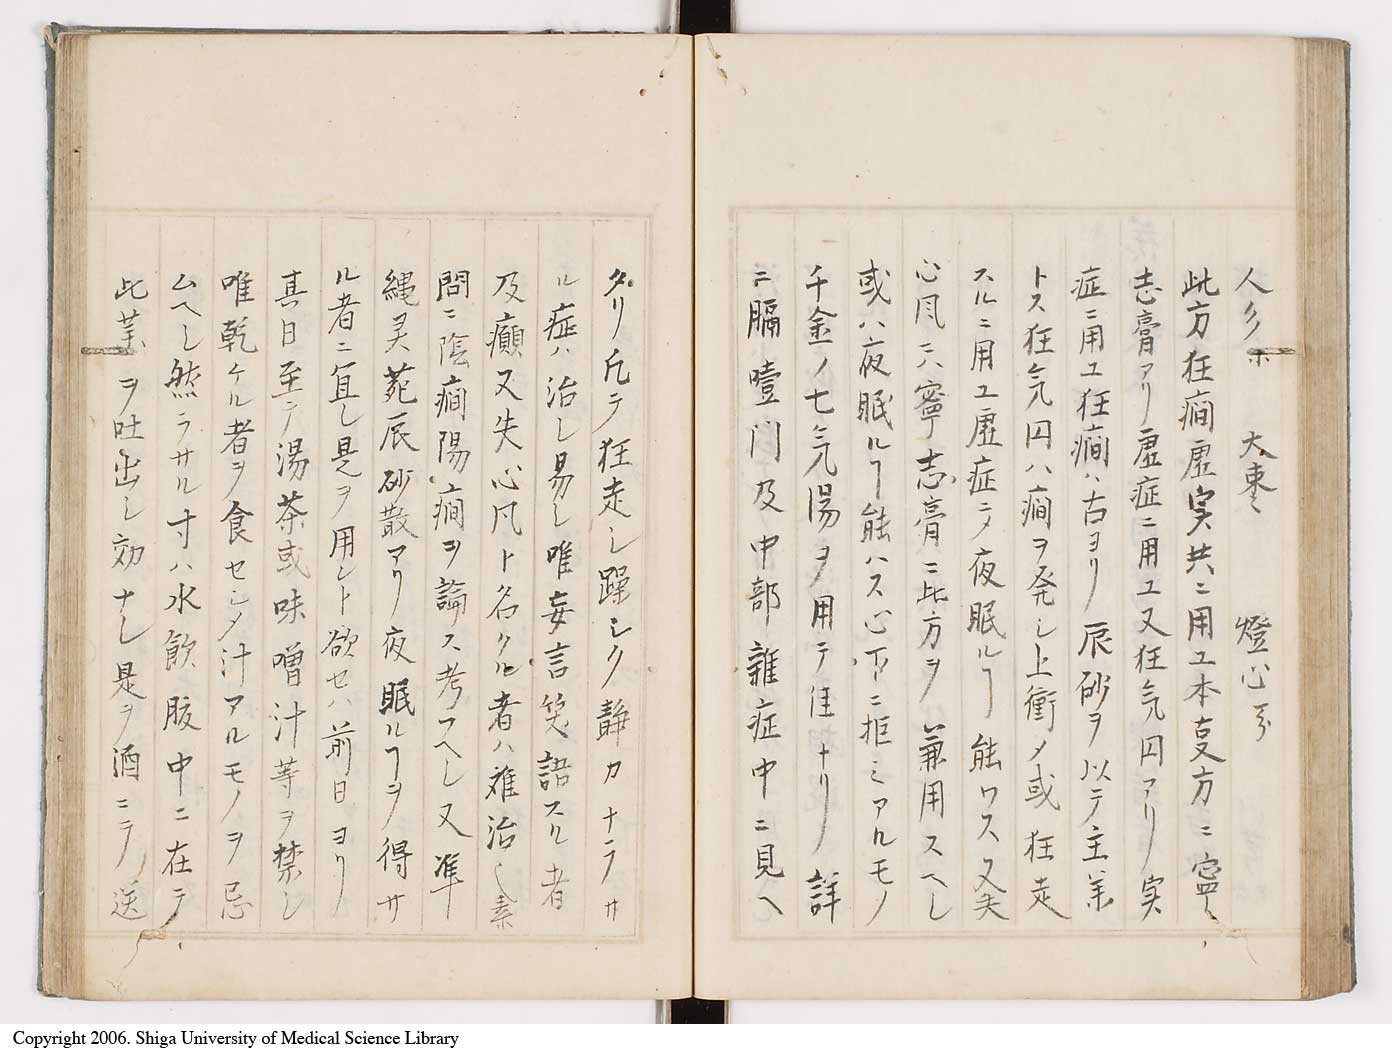 人参 大棗 燈心 各
此方狂癇虚実共ニ用ユ本支方ニ寧
志膏アリ虚症ニ用ユ又狂気円アリ実
症ニ用ユ狂癇ハ古ヨリ辰砂ヲ以テ主薬
トス狂気円ハ癇ヲ発シ上衝〆或狂走
スルニ用ユ虚症ニ〆夜眠ルヿ能ワス又失
心風ニハ寧志膏ニ此方ヲ兼用スヘシ
或ハ夜眠ルヿ能ハス心下ニ拒ミアルモノ
千金ノ七気湯ヲ用テ佳ナリ詳
ニ膈噎門及中部雑症中ニ見ヘ
タリ凡テ狂走シ躁シク静カナラサ
ル症ハ治シ易シ唯妄言笑語スル者
及癲又失心風ト名クル者ハ難治シ素
問ニ陰癇陽癇ヲ論ス考フヘシ又準
縄灵苑辰砂散アリ夜眠ルヿヲ得サ
ル者ニ宜シ是ヲ用ント欲セハ前日ヨリ
其日至テ湯茶或味噌汁等ヲ禁シ
唯乾ケル者ヲ食セシメ汁アルモノヲ忌
ムヘシ然ラサル寸ハ水飲腹中ニ在テ
此薬ヲ吐出シ効ナシ是ヲ酒ニテ送
Copyright 2006. Shiga University of Medical Science Library